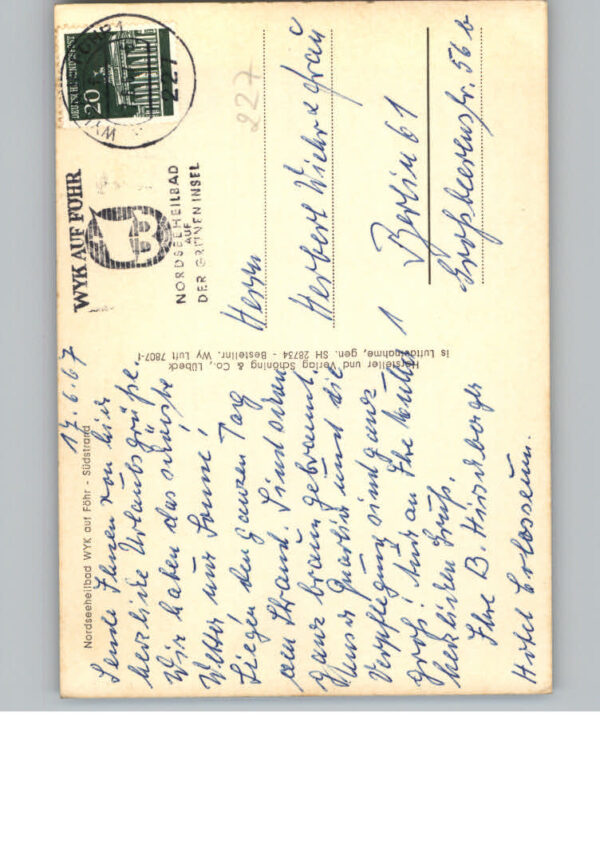 Nordseeheilbad WYK auf Föhr - Südstrand
17.6.67
Sende Ihnen von hier
herzliche Urlaubsgrüße.
Wir haben das schönste
Wetter nur Sonne!
Liegen den ganzen Tag
am Strand. Sind schon
ganz braun gebrannt.
Unser Quartier und die
Verpflegung sind ganz
groß! Auch an Ihre Mutter
herzlichen Gruß.
Ihre B. Hirschberger
Hotel Colosseum.
Hersteller und Verlag Schöning & Co., Lübeck
is Luftaufnahme, gen. SH 28734 - Bestellnr. Wy Luft 7807-1
WYK AUF FÖHR
NORDSEEHEILBAD
AUF
DER GRÜNEN INSEL
DEUTSCHE BUNDESPOST
20
227
227
Herrn
Herbert Wichr & Frau
1 Berlin 61
Großbeerenstr. 56 b